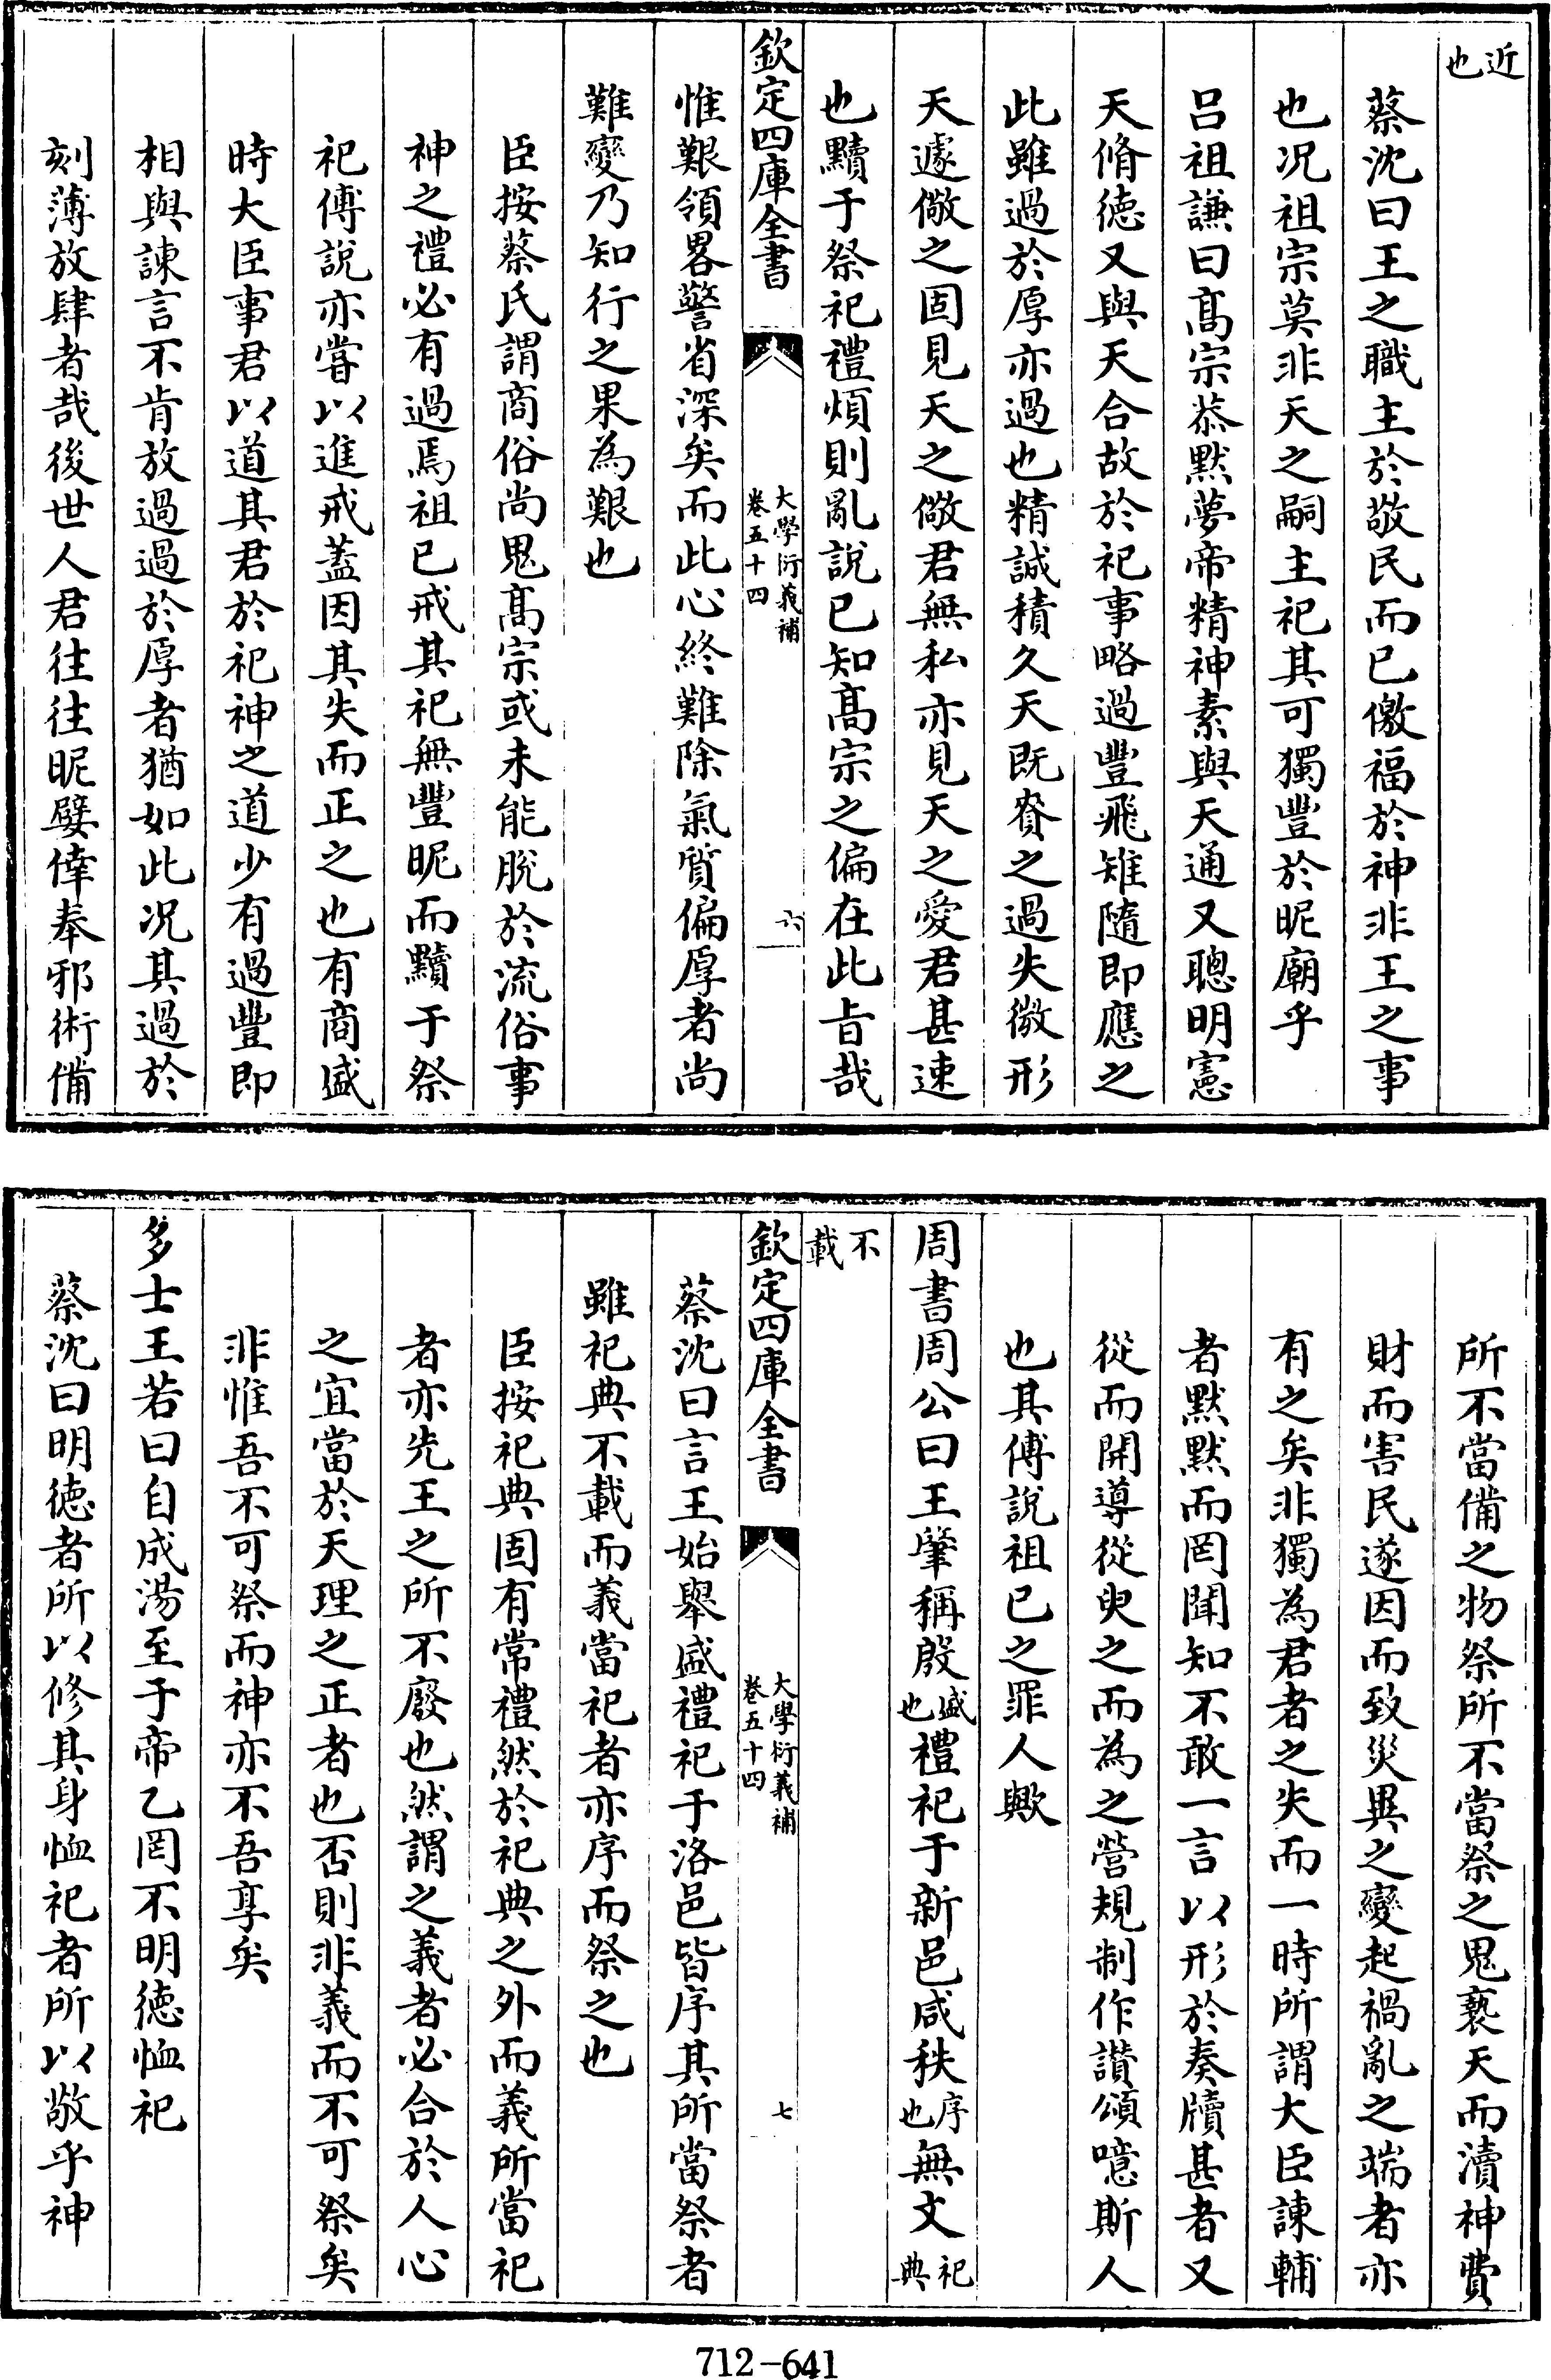 近也
蔡沈曰王之職主於敬民而已儌福於神非王之事
也况祖宗莫非天之嗣主祀其可獨豐於昵廟乎
吕祖謙曰髙宗恭黙夢帝精神素與天通又聰明憲
天脩徳又與天合故於祀事略過豐飛雉隨即應之
此雖過於厚亦過也精誠積久天既賚之過失微形
天遽儆之固見天之儆君無私亦見天之愛君甚速
也黷于祭祀禮煩則亂説已知髙宗之偏在此旨哉
欽定四庫全書
大學衍義補
卷五十四
六
惟艱領畧警省深矣而此心終難除氣質偏厚者尚
難變乃知行之果為艱也
臣按蔡氏謂商俗尚鬼髙宗或未能脱於流俗事
神之禮必有過焉祖已戒其祀無豐昵而黷于祭
祀傅説亦嘗以進戒葢因其失而正之也有商盛
時大臣事君以道其君於祀神之道少有過豐即
相與諫言不肯放過過於厚者猶如此况其過於
刻薄放肆者哉後世人君往往昵嬖倖奉邪術備
所不當備之物祭所不當祭之鬼褻天而瀆神費
財而害民遂因而致災異之變起禍亂之端者亦
有之矣非獨為君者之失而一時所謂大臣諫輔
者黙黙而罔聞知不敢一言以形於奏牘甚者又
從而開導從臾之而為之營規制作讃頌噫斯人
也其傅説祖已之罪人歟
周書周公曰王肇稱殷盛也禮祀于新邑咸秩序也無文祀典
不載
欽定四庫全書
大學衍義補
卷五十四
七
蔡沈曰言王始舉盛禮祀于洛邑皆序其所當祭者
雖祀典不載而義當祀者亦序而祭之也
臣按祀典固有常禮然於祀典之外而義所當祀
者亦先王之所不廢也然謂之義者必合於人心
之宜當於天理之正者也否則非義而不可祭矣
非惟吾不可祭而神亦不吾享矣
多士王若曰自成湯至于帝乙罔不明徳恤祀
蔡沈曰明徳者所以修其身恤祀者所以敬乎神
712-641